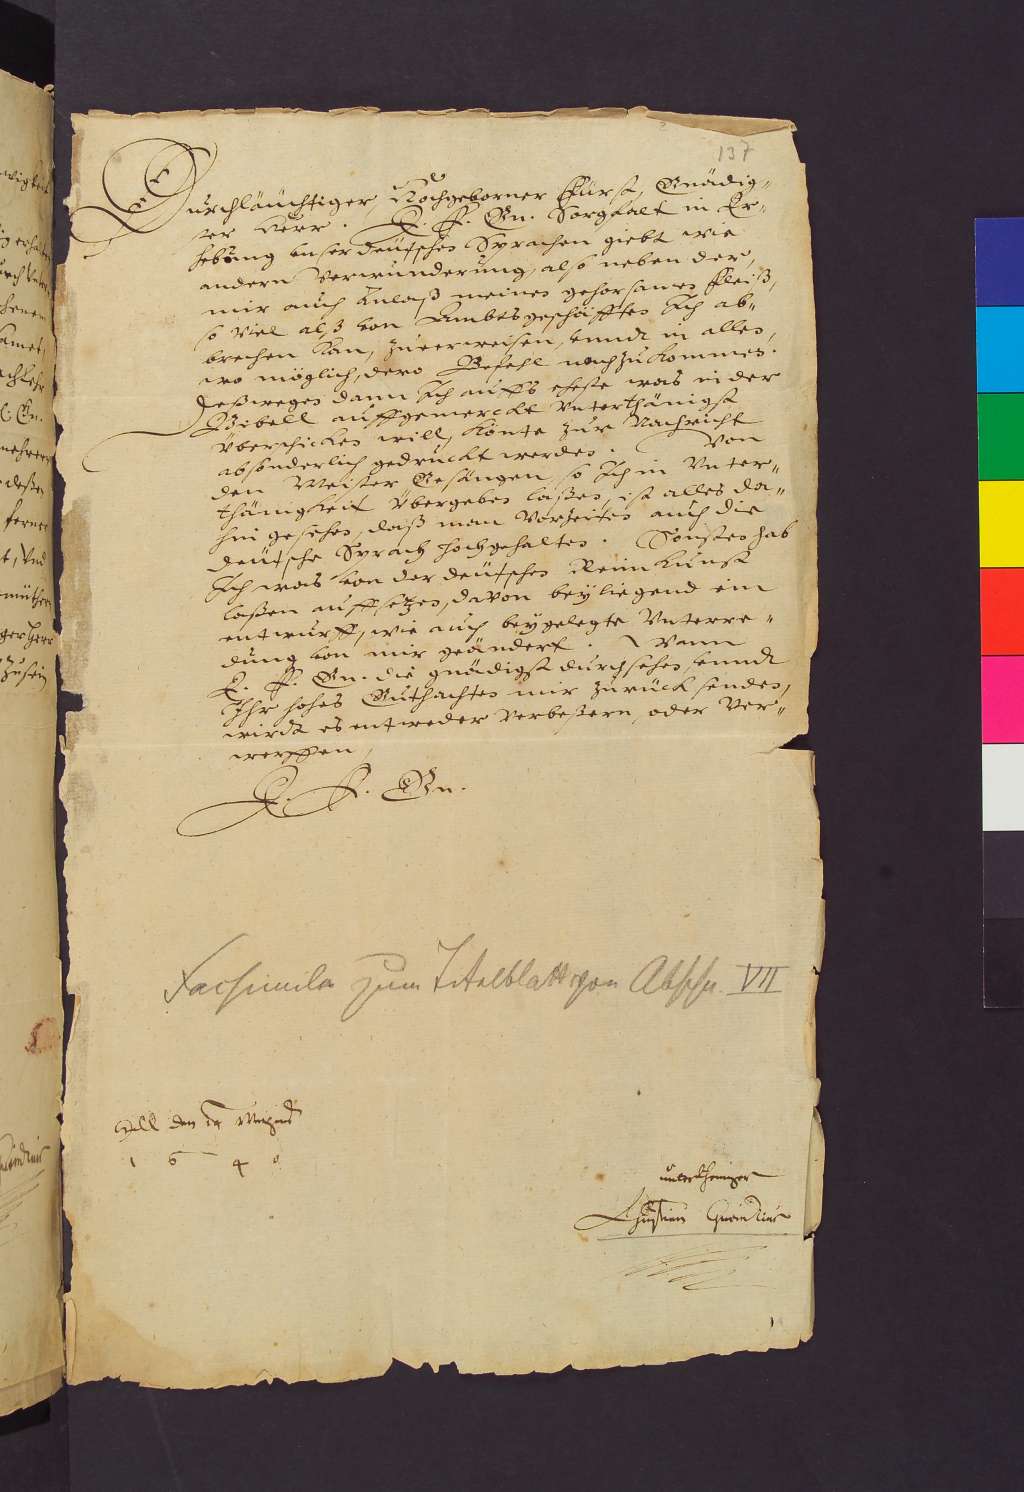 137
Durchläuchtiger, Hochgeborner Fürst, Gnädig-
ster Herr. E. F. Gn. Sorgfalt in Er-
hebung unser deütschen Sprachen giebt wie
andern Verwunderung, also neben der,
mir auch Anlaß meinen gehorsamen fleiß,
so viel alß von Ambtsgeschäfften Ich ab-
brechen kan, zuerweisen, unndt in allen,
wo möglich, dero Befehl nachzukommen.
Deßwegen dann Ich auffs eheste was in der
Bibell auffgemerckt Vnterthänigst
überschicken will, könte zur Nachricht
absonderlich gedruckt werden. Von
den Meister Gesängen, so Ich in Vnter-
thänigkeit übergeben laßen, ist alles da-
hin gesehen, daß man Vorzeiten auch die
deütsche Sprach hochgehalten. Sonsten hab
Ich was von der deütschen Reimkunst
laßen auffsetzen, davon beyliegend ein
entwurff, wie auch beygelegte Vnterre-
dung von mir geändert. Wann
E. F. Gn. die gnädigst durchsehen unndt
Ihr hohes Guthachten mir zurück senden,
wirdt es entweder verbeßern, oder ver-
werffen,
E. F. Gn.
Facsimila zum Titelblatt von Abschn. VII
Hall den
1640
unterthäniger
Christian Gueindtius